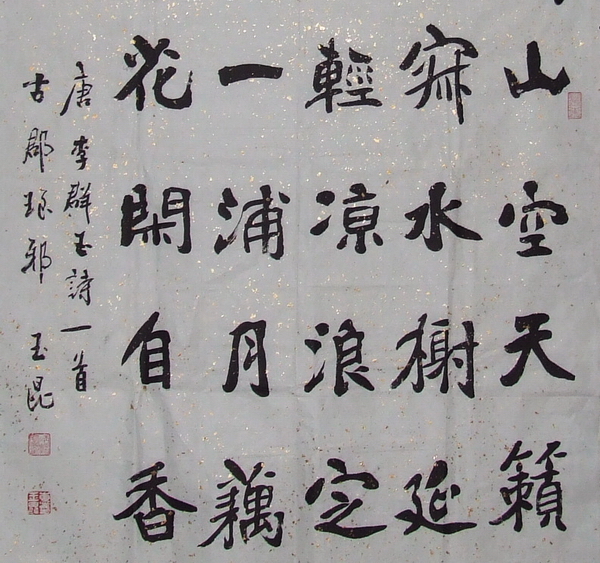 山空天籟
寂水榭延
輕凉浪定
一浦月藕
花閑自香
唐李群玉詩一首
古郡琅邪 玉昆